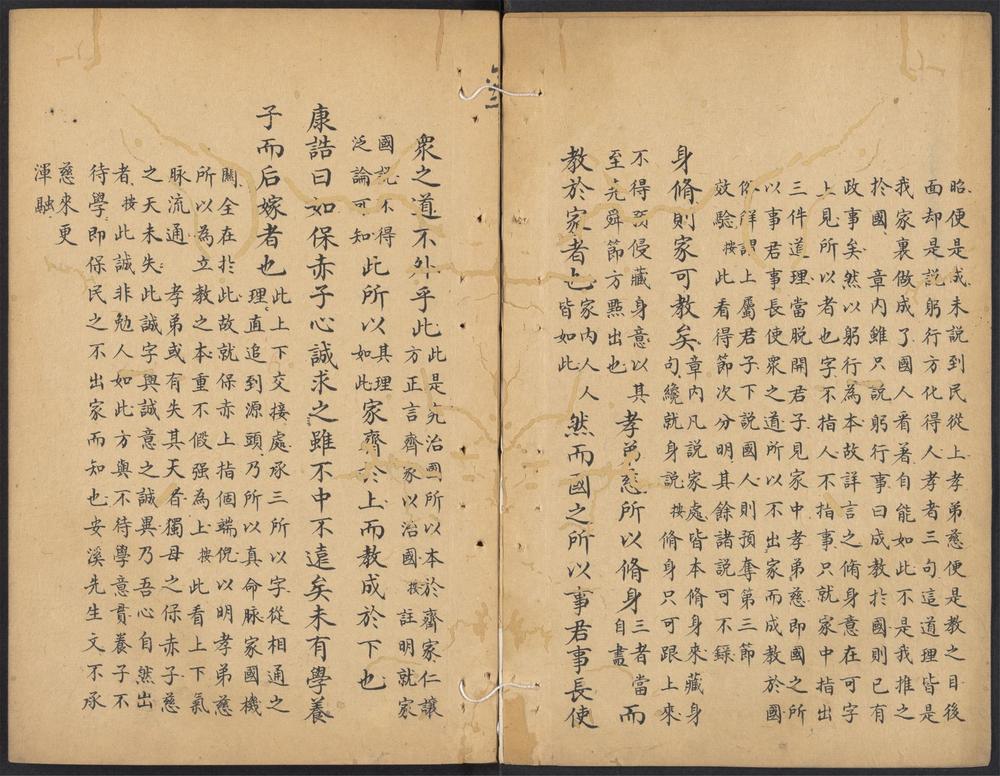 昭便是成未說到民從上孝弟慈便是教之目後
面却是說躬行方化得人孝者三句這道理皆是
我家裏做成了國人看著自能如此不是我推之
扵國章内雖只說躬行事曰成教扵國則已有
政事矣然以躬行為本故詳言之脩身意在可字
上見所以者也字不指人不指事只就家中指出
三件道理當脱開君子見家中孝弟慈即國之所
以事君事長使衆之道所以不出家而成教於國
上屬君子下說國人則預奪第三節
效驗按此看得節次分明其餘諸説可不録
身脩則家可教矣章内凡説家處皆本脩身來藏身
句纔就身説按脩身只可跟上來
不得侵藏身意以其孝弟慈所以脩身三者當而
至堯舜節方點出也自盡
教於家者也家内人人然而國之所以事君事長使
皆如此
衆之道不外乎此此是先治國所以本於齊家仁讓
方正言齊家以治國按註明就家
國說不得此所以其理家齊於上而教成於下也
泛論可知如此
康誥曰如保赤子心誠求之雖不中不遠矣未有學養
子而后嫁者也此上下交接處承三所以字從相通之
理直追到源頭乃所以真命脉家國機
關全在扵此故就保赤上指個端倪以明孝弟慈
所以為立教之本重不假强為上按此看上下氣
脉流通孝弟或有失其天者獨母之保赤子慈
之天未失此誠字與誠意之誠異乃吾心自然出
者按此誠非勉人如此方與不待學意貫養子不
待學即保民之不出家而知也安溪先生文不承
慈來更
渾融